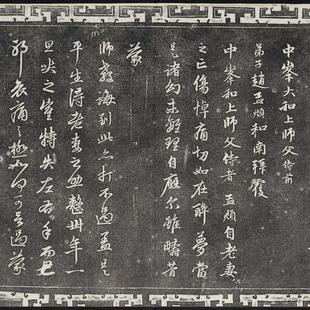 中峯大和上師父侍前
弟子趙孟頫和南拜覆
中峯和上師父侍者孟頫自老妻
之亡傷悼痛切如在醉夢當
是諸幻未離理自應尔雖疇昔
蒙
師教誨到此亦打不過蓋是
平生得老妻之血整卅年一
旦哭之豈特失左右手而已
耶哀痛之極如何可言過蒙